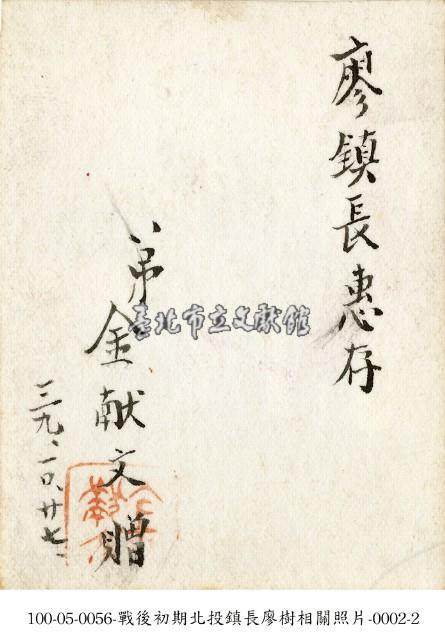 廖鎮長惠存
弟金献文贈
三九、一〇、廿七、
臺北市立文獻館
100-05-0056-戰後初期北投鎮長廖樹相關照片-0002-2